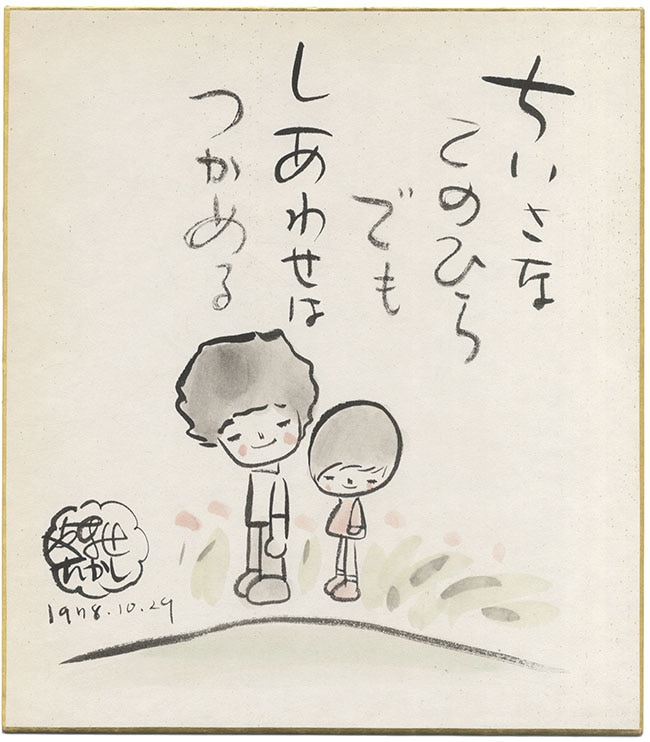 ちいさな
このひら
でも
しあわせは
つかめる
やなせ
たかし
1978.10.29